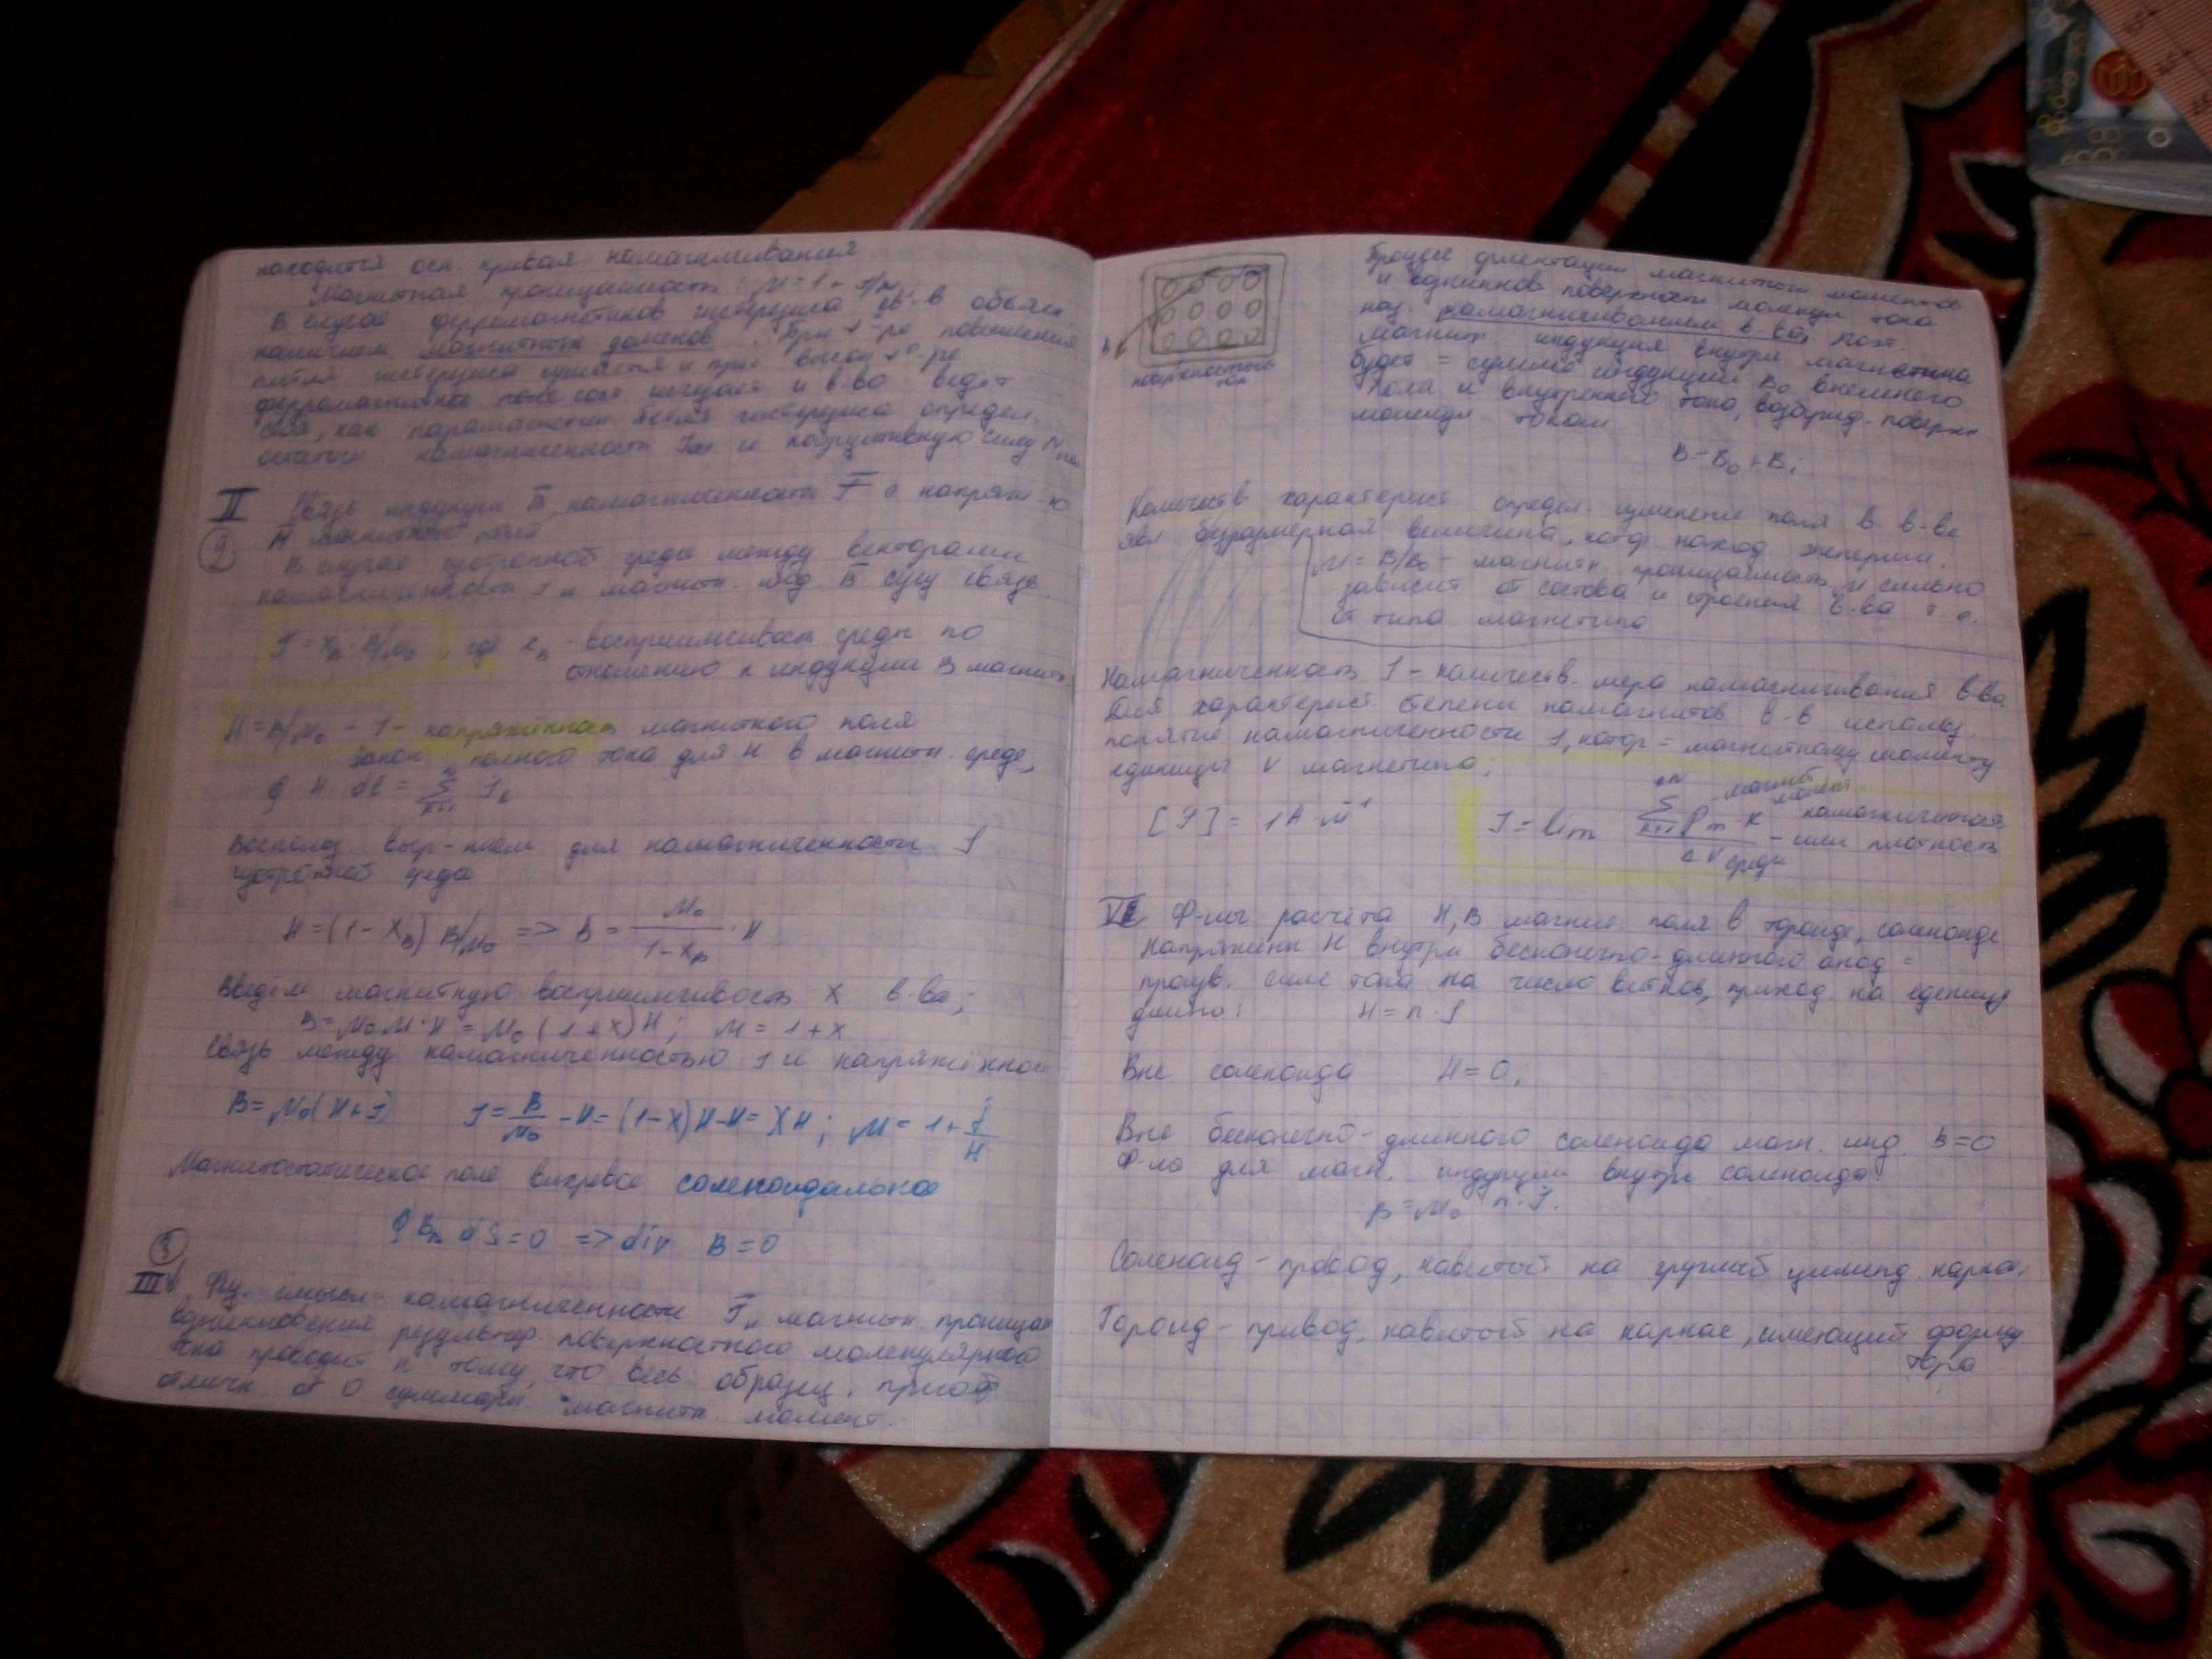 находится осн. кривая намагничивания
Магнитная проницаемость: μ = 1 + J/H
В случае ферромагнетиков гистерезиса в обьясн
наличием магнитных доменов. При t-ре повышения
петля гистерезиса и при высок t°-ре
ферромагнитное исчезает и в-во ведёт
себя, как парамагнетик. Петля гистерезиса определ.
остаточн намагниченность и коэрцитивную силу
II Связь индукции B, намагниченности J и напряж-ю
H магнитных полей
2
В случае изотропной среды между векторами
намагниченности J и магнитн. инд. B сущ связь.
J = χв · B/μ₀, где χв - восприимчивость среды по
отношению к индукции B магнитн.
H = B/μ₀ - J - напряжённость магнитного поля
закон полного тока для H в магнитн. среде,
∮ H · dl = Σ Iк
Воспольз. выр-нием для намагниченности J
изотропной среды
H = (1 - χв) B/μ₀ => B = μ₀/(1 - χв) · H
Введём магнитную восприимчивость χ в-ва;
B = μ₀μ·H = μ₀(1+χ)H; μ = 1+χ
Связь между намагниченностью J и напряжённос
B = μ₀(H+J) J = B/μ₀ - H = (1-χ)H-H = χH; μ = 1 + J/H
Магнитостатическое поле вихревое соленоидальное
∮ Bn dS = 0 => div B = 0
3
III Физ. смысл намагниченности J, магнитн. проницае
возникновения результир. поверхностного молекулярного
тока приводит к тому, что весь образец. приоб
отличн. от 0 суммарн магнитн. момент.
поверхностного
ток
Процесс ориентации магнитных моментов
и возникнов поверхности молекул тока
наз. намагничиванием в-ва, поэт.
магнит. индукция внутри магнетика
будет = сумме индукции B₀ внешнего
поля и внутреннего тока, возбужд. поверхн
молекул током
B = B₀ + Bi
Количеств характерист. определ. изменение поля в в-ве
явл безразмерная величина, котор наход эксперим.
μ = B/B₀ - магнитн. проницаемость, и сильно
зависит от состава и строения в-ва т.е.
от типа магнетика
Намагниченность J - количеств. мера намагничивания в-ва
Для характерист степени намагнитов в-в использ.
понятие намагниченности J, котор = магнитному моменту
единицы V магнетика;
[J] = 1А·м⁻¹
J = lim Σ Pm·к / ΔV - намагниченность
магнит момент
или плотность
среды
VI Ф-лы расчёта H, B магнит поля в тороиде, соленоиде
Напряжённ H внутри бесконечно-длинного солод =
произв. силе тока на число витков, приход. на единицу
длины: H = n·J
Вне соленоида H = 0;
Вне бесконечно-длинного соленоида магн. инд. B=0
Ф-ла для магн. индукции внутри соленоида:
B = μ₀ n·J.
Соленоид - провод, навитый на круглый цилинд. карка
Тороид - привод, навитый на каркас, имеющий форму
тора